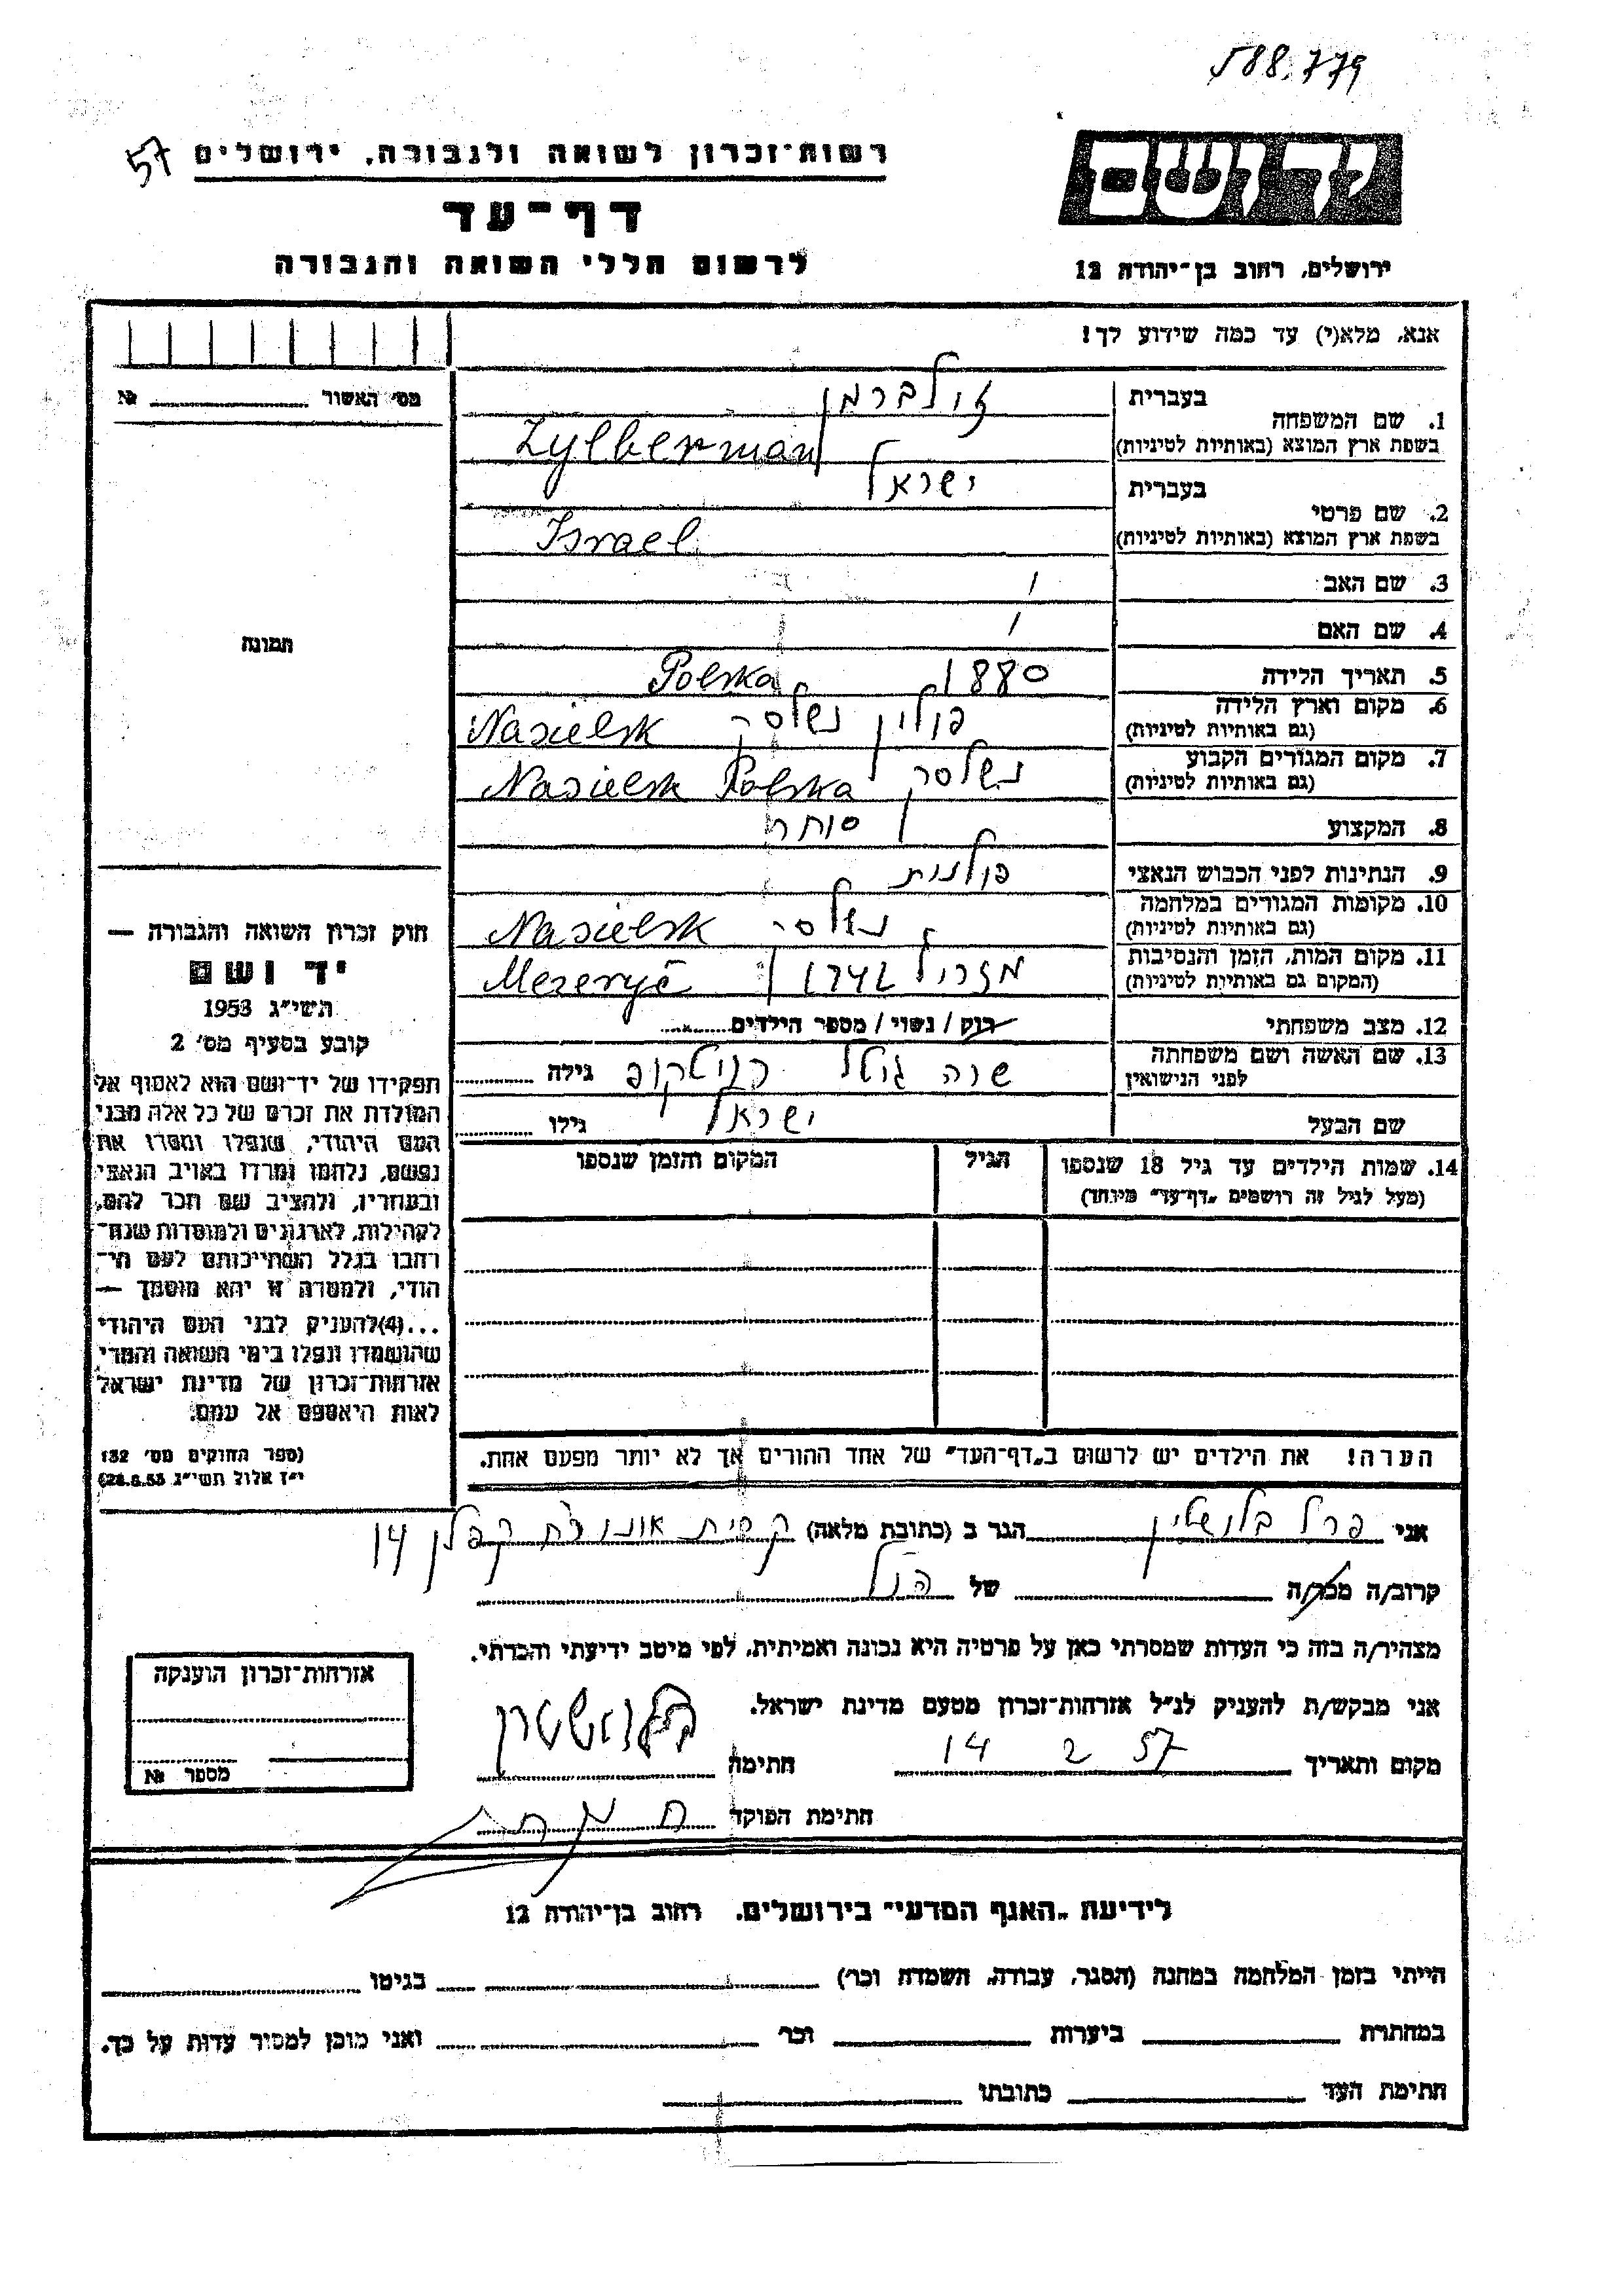 588.779
57
רשות־זכרון לשואה ולגבורה, ירושלים
דף־עד
לרשום חללי השואה והגבורה
יד ושם
ירושלים, רחוב בן־יהודה 12
אנא, מלא(י) עד כמה שידוע לך!
מס׳ האשור № 
1. שם המשפחה בעברית זילברמן
בשפת ארץ המוצא (באותיות לטיניות) Zylberman
2. שם פרטי בעברית ישראל
בשפת ארץ המוצא (באותיות לטיניות) Israel
3. שם האב /
4. שם האם /
תמונה
5. תאריך הלידה 1880 Polska
6. מקום וארץ הלידה (גם באותיות לטיניות) פולין נשלסק Nasielsk
7. מקום המגורים הקבוע (גם באותיות לטיניות) נשלסק Nasielsk Polska
8. המקצוע סוחר
9. הנתינות לפני הכבוש הנאצי פולנית
10. מקומות המגורים במלחמה (גם באותיות לטיניות) נשלסק Nasielsk
11. מקום המות, הזמן והנסיבות (המקום גם באותיות לטיניות) 1942
12. מצב משפחתי רוק / נשוי / מספר הילדים
13. שם האשה ושם משפחתה לפני הנישואין שרה גילה
שם הבעל ישראל גילו
14. שמות הילדים עד גיל 18 שנספו הגיל המקום והזמן שנספו
(מעל לגיל זה רושמים „דף־עד״ מיוחד)
חוק זכרון השואה והגבורה —
יד ושם
תשי״ג 1953
קובע בסעיף מס׳ 2
תפקידו של יד־ושם הוא לאסוף אל
המולדת את זכרם של כל אלה מבני
העם היהודי, שנפלו ומסרו את
נפשם, נלחמו ומרדו באויב הנאצי
ובעוזריו, ולהציב שם וזכר להם,
לקהילות, לארגונים ולמוסדות שנח־
רבו בגלל השתייכותם לעם הי־
הודי, ולמטרה זו יהא מוסמך —
...(4)להעניק לבני העם היהודי
שהושמדו ונפלו בימי השואה והמרי
אזרחות־זכרון של מדינת ישראל
לאות היאספם אל עמם.
(ספר החוקים מס׳ 132
י״ז אלול תשי״ג 28.8.53)
הערה! את הילדים יש לרשום ב„דף־העד״ של אחד ההורים אך לא יותר מפעם אחת.
אני פרל בלושטין הגר ב (כתובת מלאה) קרית אונו רח קפלן 14
קרוב/ה מכר/ה של הנ״ל
מצהיר/ה בזה כי העדות שמסרתי כאן על פרטיה היא נכונה ואמיתית, לפי מיטב ידיעתי והכרתי.
אני מבקש/ת להעניק לנ״ל אזרחות־זכרון מטעם מדינת ישראל.
מקום ותאריך 14 2 57 חתימה
חתימת הפוקד
אזרחות־זכרון הוענקה
מספר №
לידיעת „האגף המדעי״ בירושלים. רחוב בן־יהודה 12
הייתי בזמן המלחמה במחנה (הסגר, עבודה, השמדה וכר׳) בגיטו
במחתרת ביערות וכר׳ ואני מוכן למסיר עדות על כך.
חתימת העד כתובתו